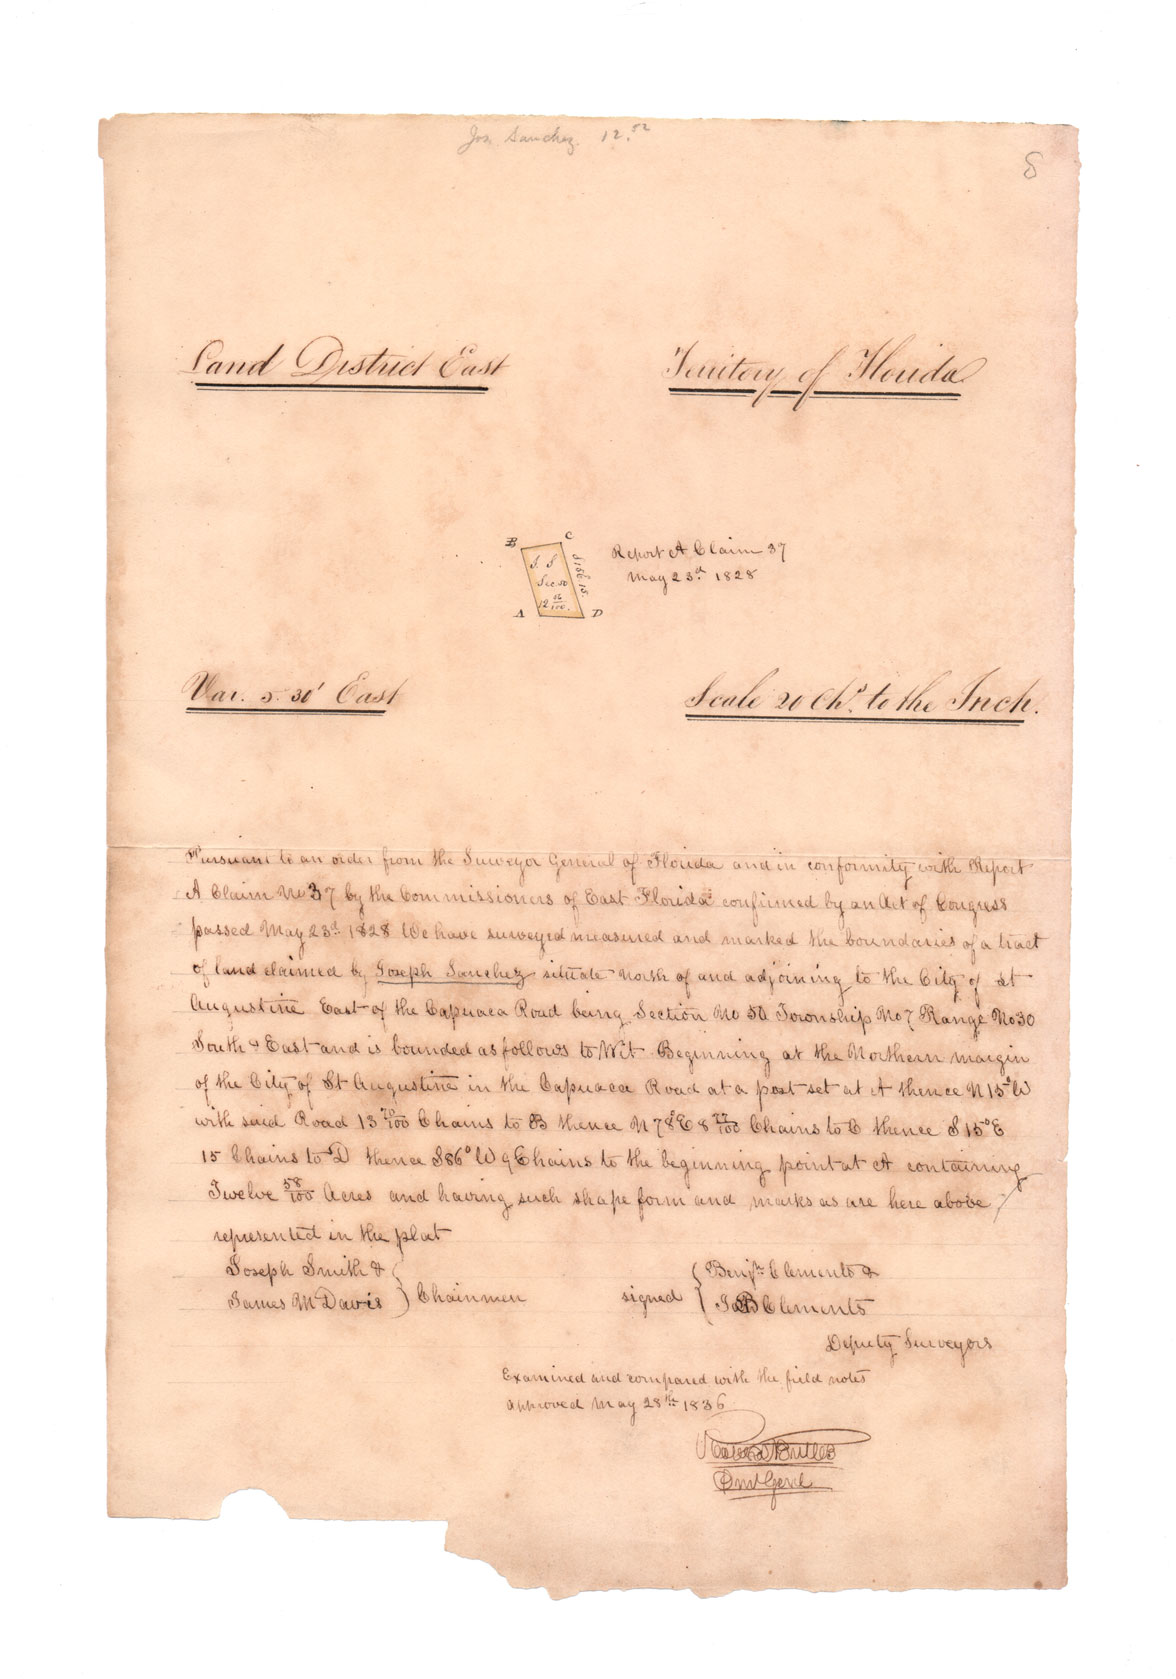 Jos. Sanchez. 12.52
8
Land District East
Territory of Florida
B C
J. S
Sec 50
12 58/100
S 15 E 15.
A D
Report A Claim 37
May 23d 1828
Var. 5. 30' East
Scale 20 Chs. to the Inch.
Pursuant to an order from the Surveyor General of Florida and in conformity with Report
A Claim No 37 by the Commissioners of East Florida confirmed by an Act of Congress
passed May 23d 1828 We have surveyed measured and marked the boundaries of a tract
of land claimed by Joseph Sanchez situate north of and adjoining to the City of St
Augustine East of the Capuaca Road being Section No 50 Township No 7 Range No 30
South & East and is bounded as follows to Wit Beginning at the Northern margin
of the City of St Augustine in the Capuaca Road at a post set at A thence N 15° W
with said Road 13 70/100 Chains to B thence N 78° E 8 77/100 Chains to C thence S 15° E
15 Chains to D thence S 86° W 9 Chains to the beginning point at A containing
Twelve 58/100 Acres and having such shape form and marks as are here above
represented in the plat
Joseph Smith &
James M Davis } Chainmen
signed { Benjn Clements &
Clements
Deputy Surveyors
Examined and compared with the field notes
approved May 28th 1836
Butler
Genl